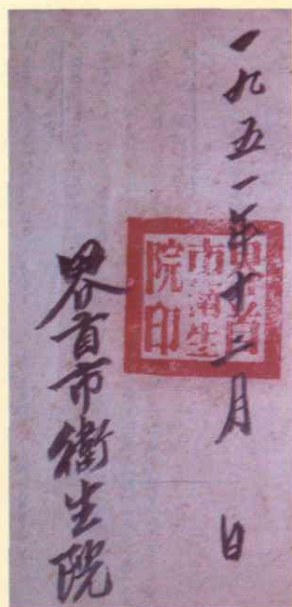 一九五一年十二月 日
界首市衛生院
界首
市衛生
院印